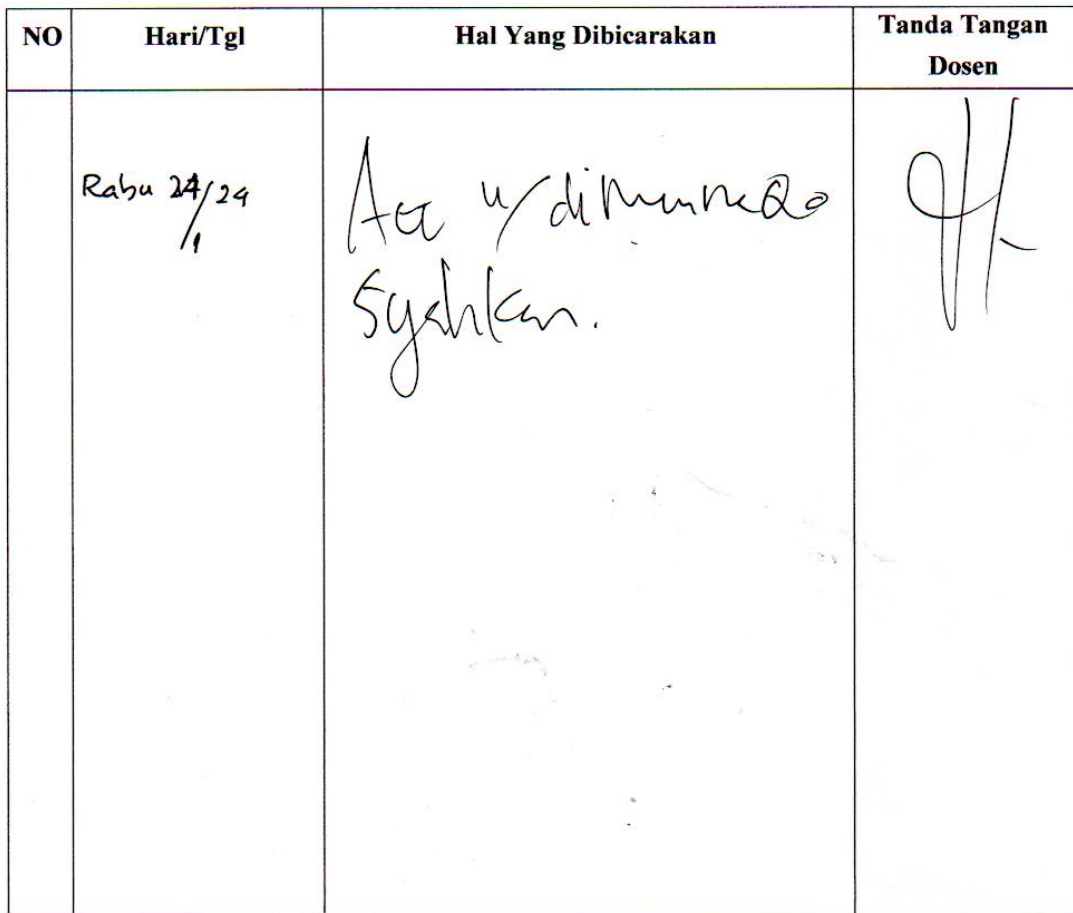 NO Hari/Tgl Hal Yang Dibicarakan Tanda Tangan Dosen
Rabu 24/1 24
Acc u/ dimunaqo
syahkan.